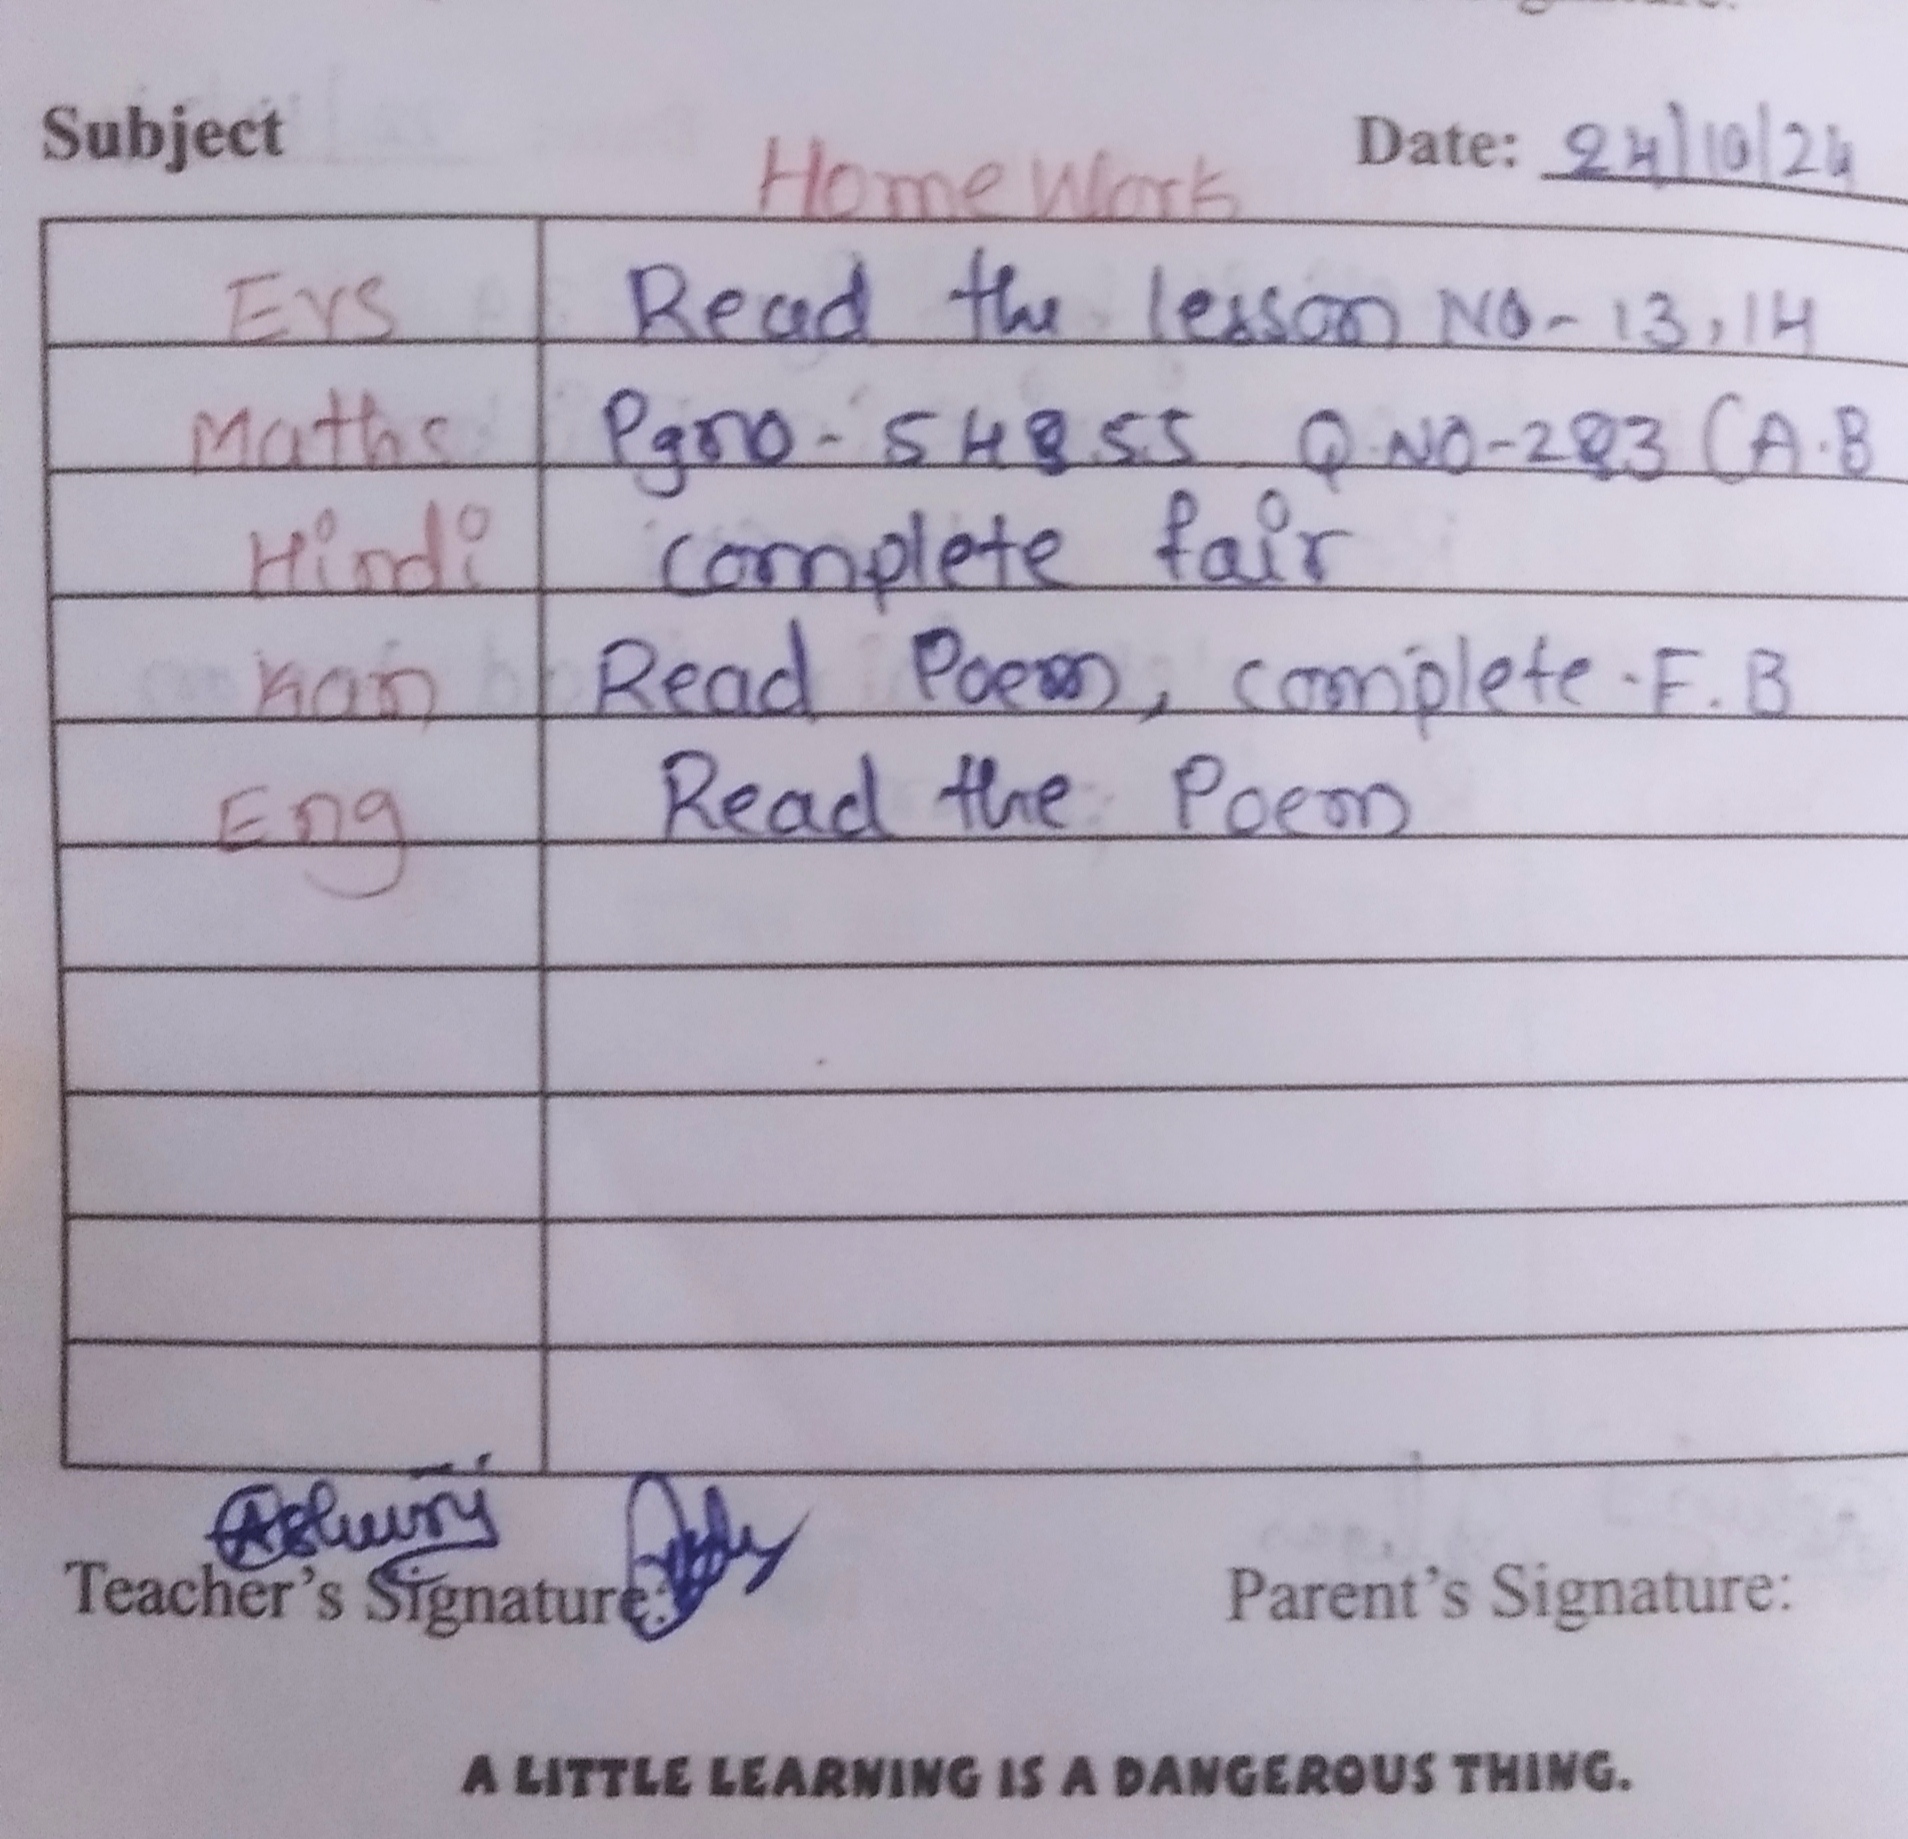 Subject
Home Work
Date: 24/10/24
Evs Read the lesson NO- 13, 14
Maths Pgno- 54&55 Q.NO-2&3 (A.B
Hindi complete fair
Kan Read Poem, complete-F.B
Eng Read the Poem
Teacher's Signature:
Parent's Signature:
A LITTLE LEARNING IS A DANGEROUS THING.